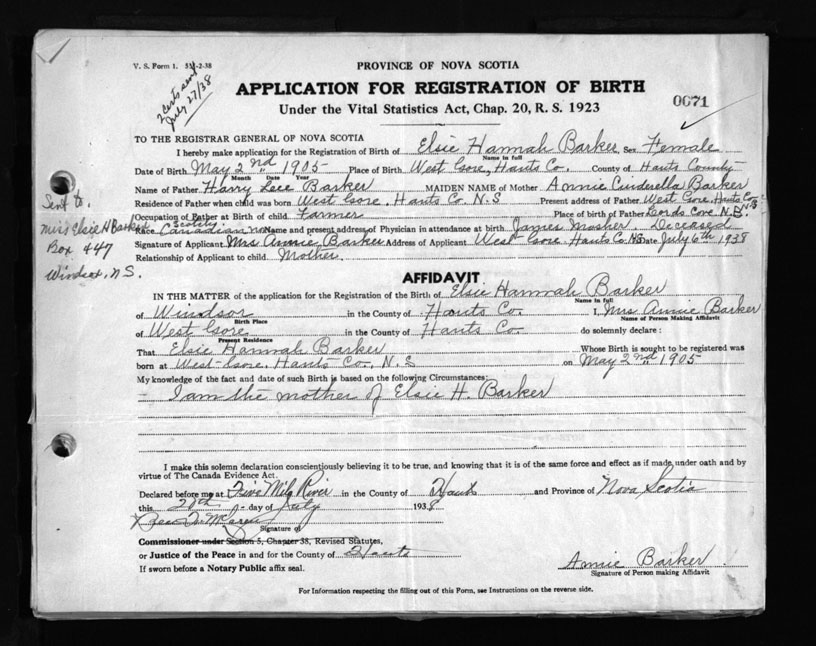 V. S. Form 1.
PROVINCE OF NOVA SCOTIA
2 certs sent
July 27/38
APPLICATION FOR REGISTRATION OF BIRTH
0671
Under the Vital Statistics Act, Chap. 20, R. S. 1923
TO THE REGISTRAR GENERAL OF NOVA SCOTIA
I hereby make application for the Registration of Birth of Elsie Hannah Barker Sex Female
Name in full
Date of Birth May 2nd 1905 Place of Birth West Gore, Hants Co. County of Hants County
Month Date Year
Name of Father Harry Lee Barker MAIDEN NAME of Mother Annie Cinderella Barker
Residence of Father when child was born West Gore. Hants Co. N.S Present address of Father West Gore. Hants Co. N.S
Occupation of Father at Birth of child Farmer Place of birth of Father Lords Cove N.B.
Race Canadian Name and present address of Physician in attendance at birth James Mosher. Deceased
Signature of Applicant Mrs Annie Barker Address of Applicant West Gore Hants Co. NS Date July 6th 1938
Relationship of Applicant to child Mother.
Sent to.
Miss Elsie H Barker
Box 447
Windsor, N S.
AFFIDAVIT
IN THE MATTER of the application for the Registration of the Birth of Elsie Hannah Barker
Name in full
of Windsor in the County of Hants Co. I, Mrs Annie Barker
Birth Place Name of Person Making Affidavit
of West Gore in the County of Hants Co. do solemnly declare :
Present Residence
That Elsie Hannah Barker Whose Birth is sought to be registered was
born at West-Gore, Hants Co., N.S on May 2nd 1905
My knowledge of the fact and date of such Birth is based on the following Circumstances:
- I am the mother of Elsie H. Barker
I make this solemn declaration conscientiously believing it to be true, and knowing that it is of the same force and effect as if made under oath and by
virtue of The Canada Evidence Act.
Declared before me at Five Mile River in the County of Hants and Province of Nova Scotia
this 20th day of July 1938
Signature of
Commissioner under Section 5, Chapter 38, Revised Statutes,
or Justice of the Peace in and for the County of Hants
If sworn before a Notary Public affix seal.
Annie Barker
Signature of Person making Affidavit
For Information respecting the filling out of this Form, see Instructions on the reverse side.